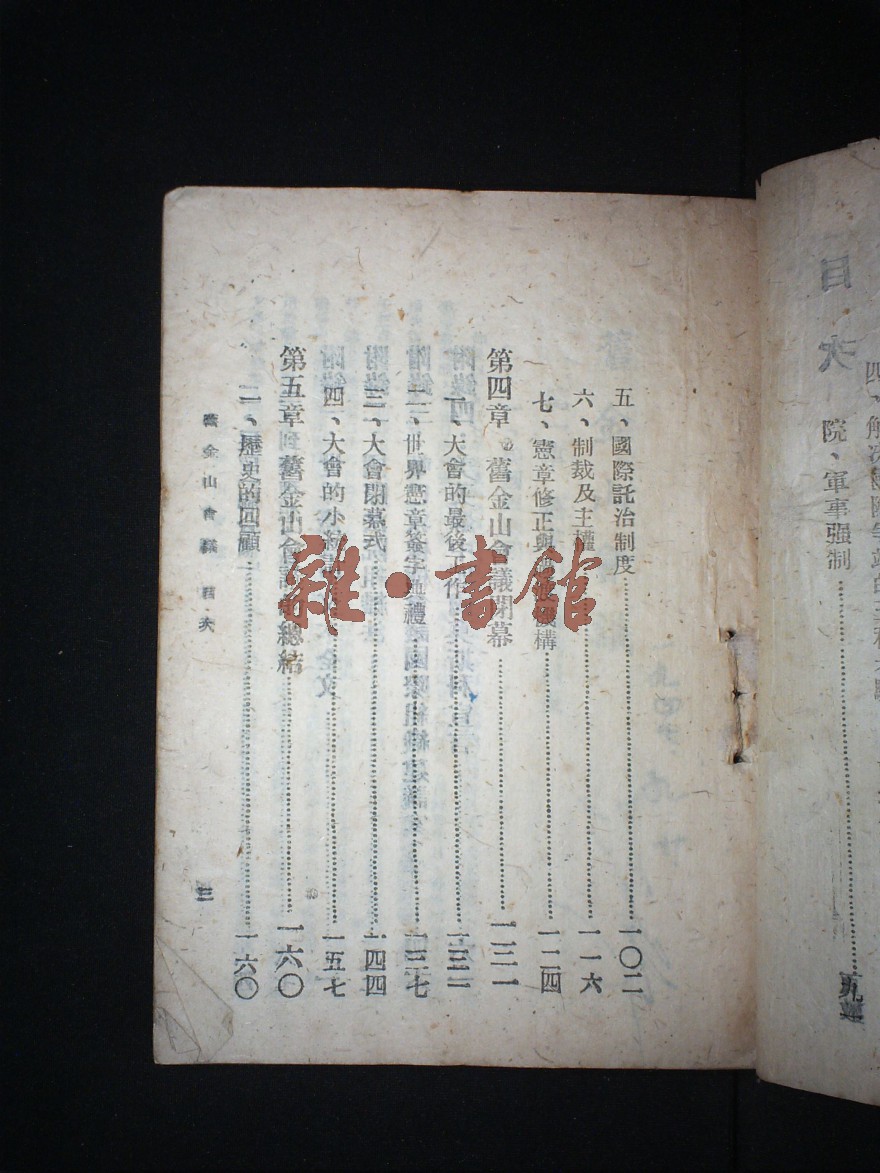 目次
院、軍事强制
五、國際託治制度 一〇二
六、制裁及主權 一一六
七、憲章修正與 構 一二四
第四章 舊金山會議閉幕 一三一
一、大會的最後工作 一三一
二、世界憲章簽字典禮 一三七
三、大會閉幕式 一四四
四、大會的小結 一五七
第五章 舊金山會議的總結 一六〇
一、歷史的回顧 一六〇
舊金山會議 目次
三
雜·書館